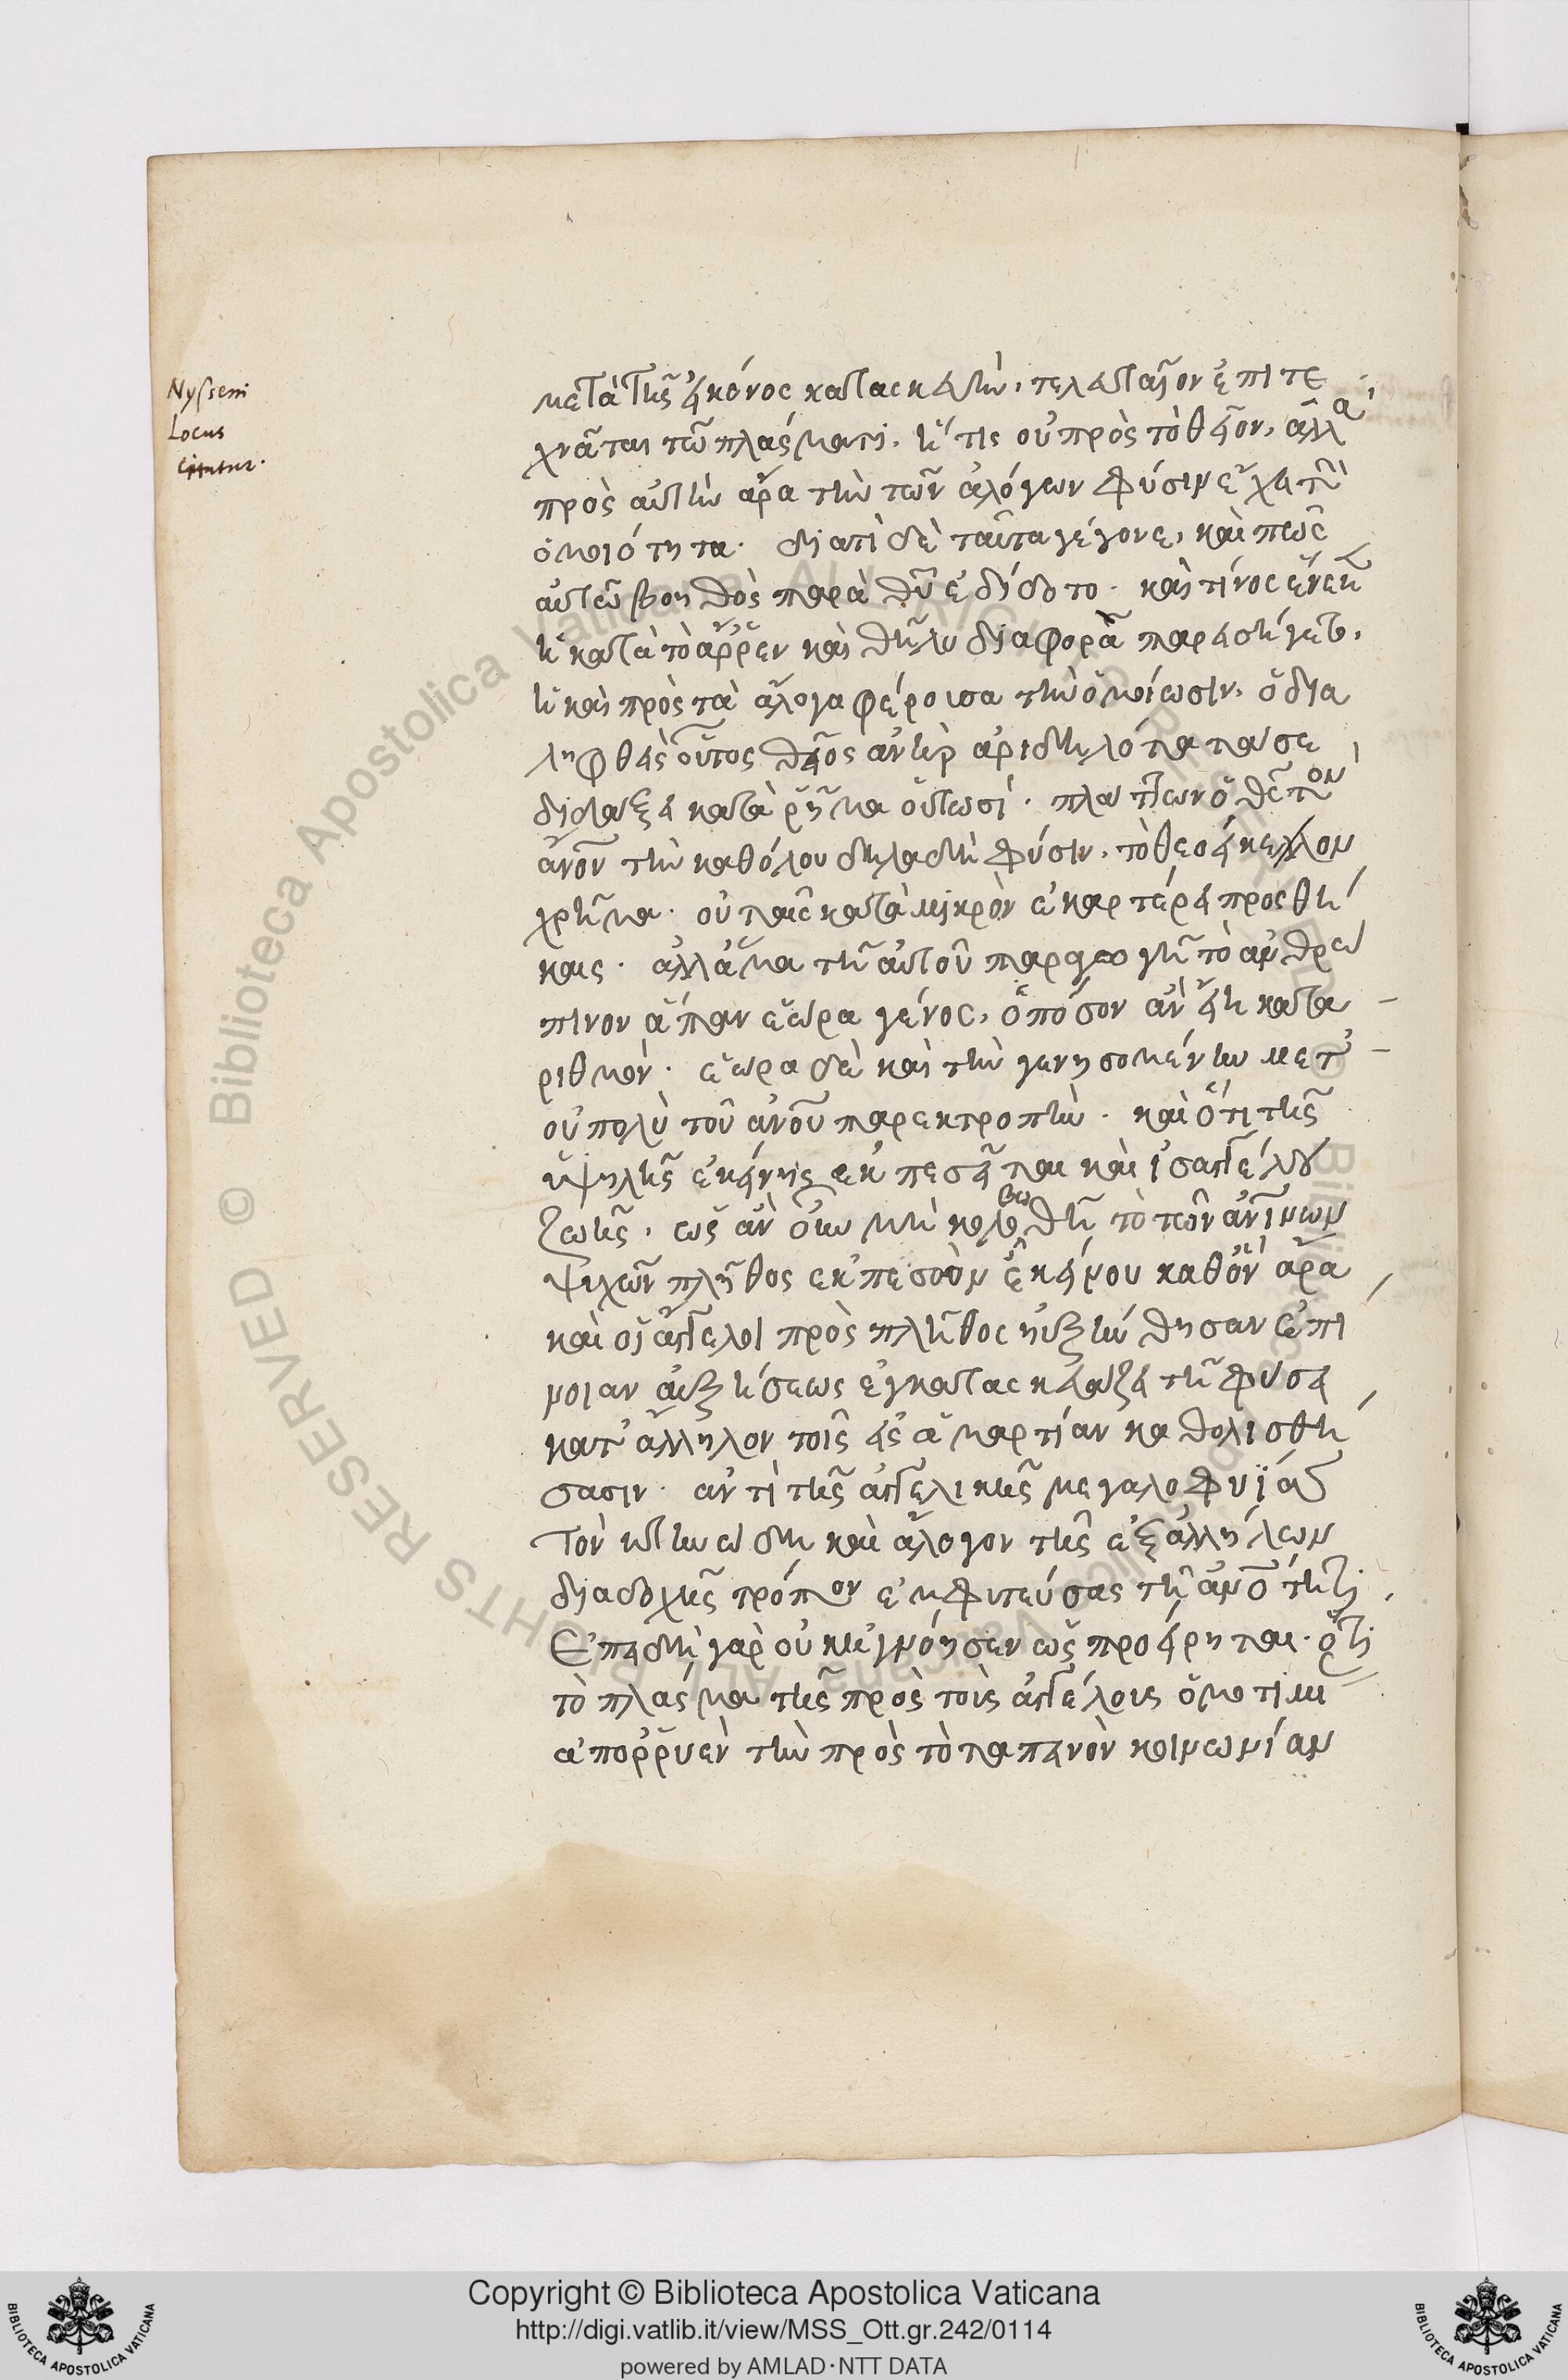 Nysseni
Locus
citatur.
μετὰ τῆς εἰκόνος κατασκευὴν, τελευταῖον ἐπιτε
χνᾶται τῷ πλάσματι. ἥτις οὐ πρὸς τὸ θεῖον, ἀλλὰ
πρὸς αὐτὴν ἄρα τὴν τῶν ἀλόγων φύσιν εἶχε τὴν
ὁμοιότητα. διατὶ δὲ ταῦτα γέγονε, καὶ πῶς
αὐτῷ βοηθὸς παρὰ θυ ἐδίδοτο. καὶ τίνος ἕνεκεν
ἡ κατὰ τὸ ἄρρεν καὶ θῆλυ διαφορὰ
ἡ καὶ πρὸς τὰ ἄλογα φέρουσα τὴν ὁμοίωσιν. ὁ δια
ληφθεὶς οὗτος θεῖος ἀνὴρ
κατὰ ῥῆμα οὑτωσί. πλάττων ὁ θς τὸν
ἄνον τὴν καθόλου δηλαδὴ φύσιν. τὸ θεοείκελον
χρῆμα. οὐ ταῖς κατὰ μικρὸν ἐκαρτέρει προσθή
καις. ἀλλ' ἅμα τῇ αὐτοῦ παραγωγῇ τὸ ἀνθρώ
πινον ἅπαν ἑώρα γένος, ὁπόσον ἂν εἴη κατα
ριθμόν. ἑώρα δὲ καὶ τὴν γενησομένην μετ'
οὐ πολὺ τοῦ ἀνου παρεκτροπὴν. καὶ ὅτι τῆς
ὑψηλῆς ἐκείνης ἐκπεσεῖται καὶ ἰσαγγέλου
ζωῆς. ὡς ἂν οὖν μὴ κολοβωθῇ τὸ τῶν ἀνίνων
ψυχῶν πλῆθος ἐκπεσὸν ἐκείνου καθ' ὃν ἄρα
καὶ οἱ ἄγγελοι πρὸς πλῆθος ηὐξήνθησαν ἐπί
νοιαν αὐξήσεως ἐγκατασκευάζει τῇ φύσει
κατάλληλον τοῖς εἰς ἁμαρτίαν κατολισθή
σασιν. ἀντὶ τῆς ἀγγελικῆς μεγαλοφυΐας
τὸν κτηνώδη καὶ ἄλογον τῆς ἐξ ἀλλήλων
διαδοχῆς τρόπον ἐμφυτεύσας τῇ ἀνότητι.
Ἐπειδὴ γὰρ οὐκ ἐγνόησεν ὡς προείρηται. ὅτι
τὸ πλάσμα τῆς πρὸς τοὺς ἀγγέλους ὁμοτιμί
ἀπορρυὲν τὴν πρὸς τὸ ταπεινὸν κοινωνίαν
© Biblioteca Apostolica Vaticana ALL RIGHTS RESERVED
Copyright © Biblioteca Apostolica Vaticana
http://digi.vatlib.it/view/MSS_Ott.gr.242/0114
powered by AMLAD·NTT DATA
BIBLIOTECA APOSTOLICA VATICANA
BIBLIOTECA APOSTOLICA VATICANA